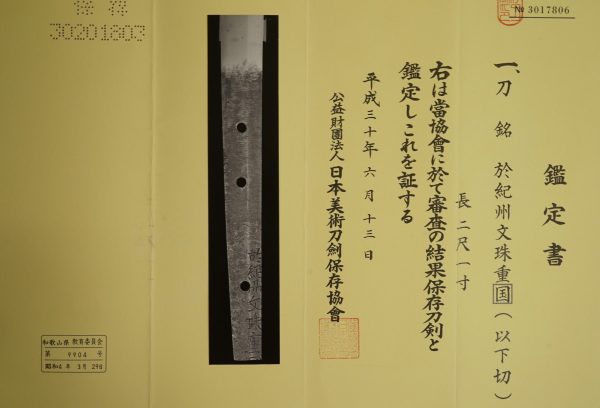 № 3017806
鑑定書
一、刀 銘 於紀州文珠重国(以下切)
長 二尺一寸
右は當協會に於て審査の結果保存刀剣と
鑑定しこれを証する
平成三十年六月十三日
公益財團法人 日本美術刀劍保存協會
於紀州文珠重
保存
30201803
和歌山県 教育委員会
第 9904 号
昭和 年 3月 29日